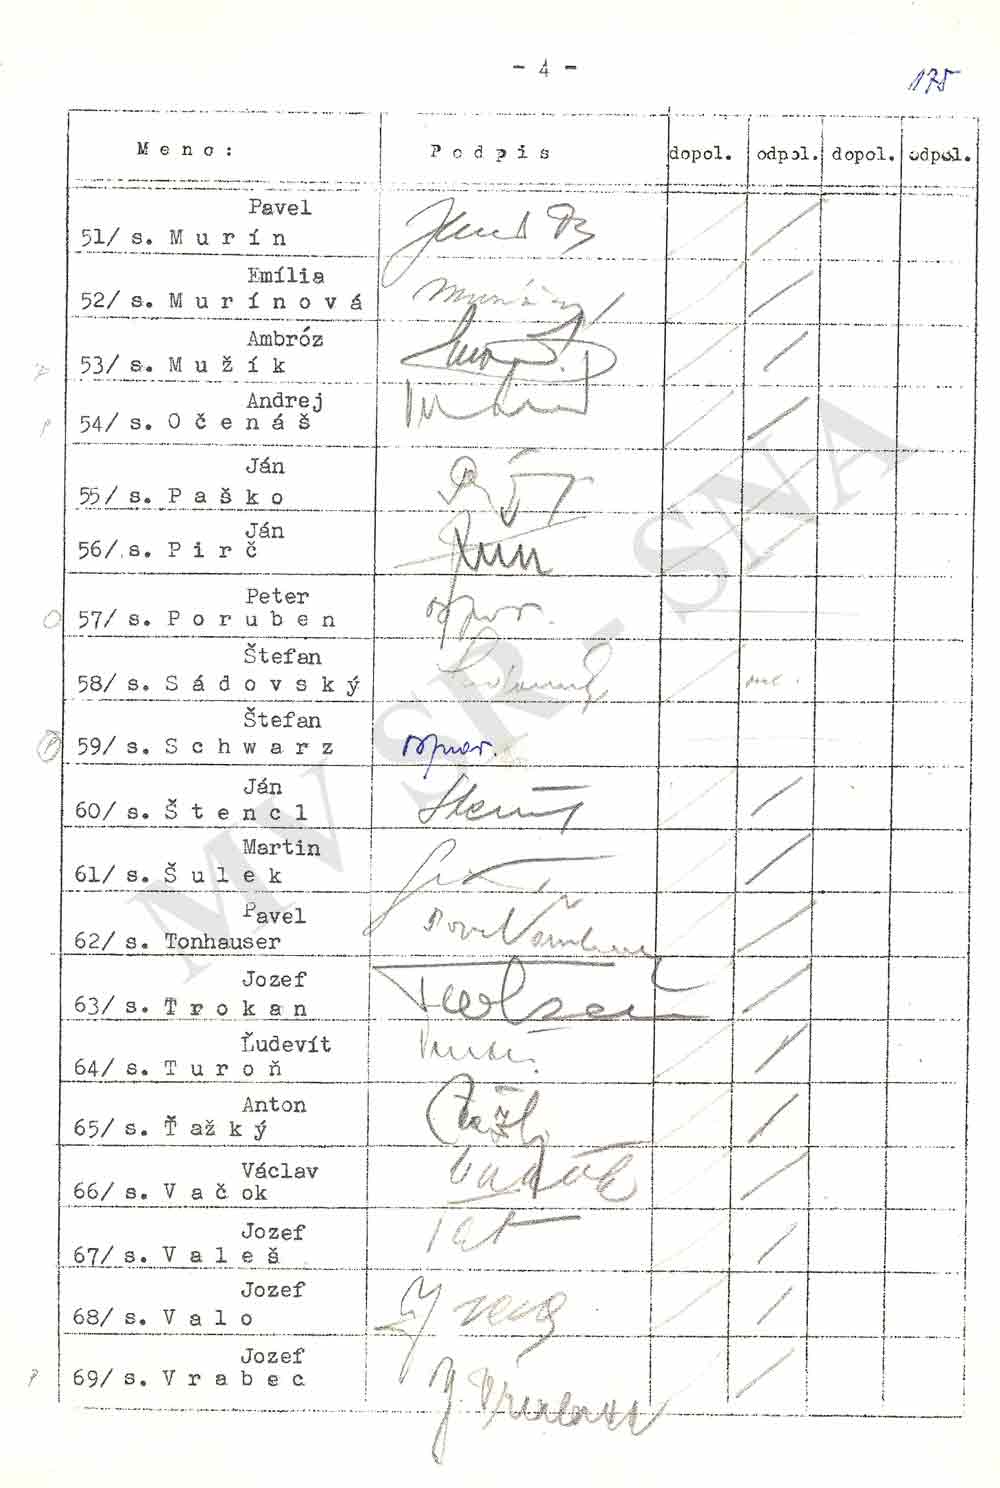 - 4 -
175
M e n o :
P o d p i s
dopol.
odpol.
dopol.
odpol.
Pavel
51/ s. M u r í n
Emília
52/ s. M u r í n o v á
Ambróz
53/ s. M u ž í k
Andrej
54/ s. O č e n á š
Ján
55/ s. P a š k o
Ján
56/ s. P i r č
Peter
57/ s. P o r u b e n
ospr.
Štefan
58/ s. S á d o v s k ý
nie.
Štefan
59/ s. S c h w a r z
ospr.
Ján
60/ s. Š t e n c l
Martin
61/ s. Š u l e k
Pavel
62/ s. Tonhauser
Jozef
63/ s. T r o k a n
Ľudevít
64/ s. T u r o ň
Anton
65/ s. Ť a ž k ý
Václav
66/ s. V a č o k
Jozef
67/ s. V a l e š
Jozef
68/ s. V a l o
Jozef
69/ s. V r a b e c
MV SR - SNA